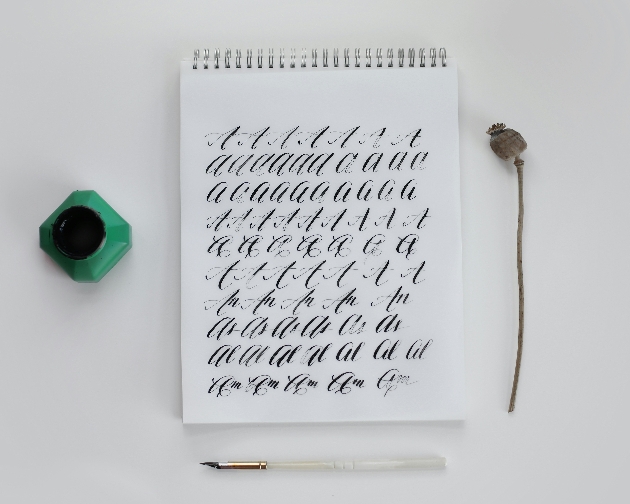 A A A A A A A
a a a a a a a a a a a
a a a a a a a a a a a
A A A A A A A A A
a a a a a a a
A A A A A A A
An An An An An
as as as as as as
al al al al al al al
am am am am am